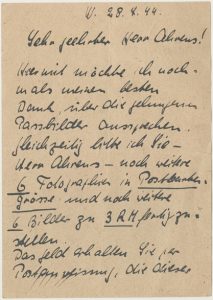 W. 28.8.44.
Sehr geehrter Herr Ahrens!
Hiermit möchte ich noch-
mals meinen besten
Dank, über die gelungenen
Passbilder aussprechen.
Gleichzeitig bitte ich Sie -
Herr Ahrens - noch weitere
6 Fotographien in Postkarten-
Grösse und noch weitere
6 Bilder zu 3 RM fertig zu-
stellen.
Das Geld erhalten Sie per
Postanweisung, die dieser